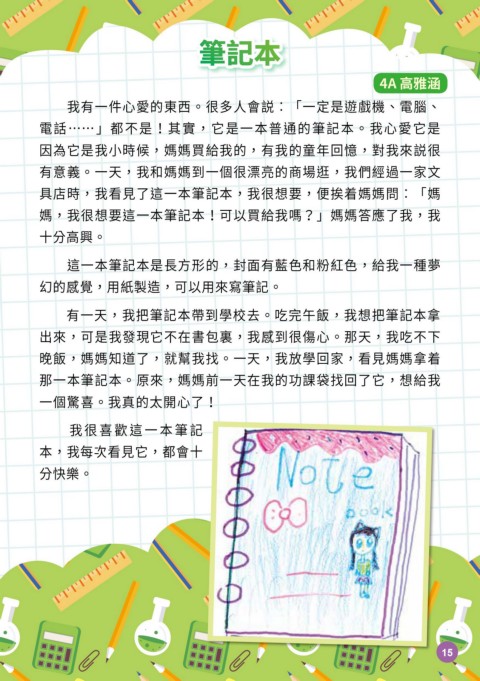 筆記本
4A 高雅涵
我有一件心愛的東西。很多人會説：「一定是遊戲機、電腦、
電話……」都不是！其實，它是一本普通的筆記本。我心愛它是
因為它是我小時候，媽媽買給我的，有我的童年回憶，對我來説很
有意義。一天，我和媽媽到一個很漂亮的商場逛，我們經過一家文
具店時，我看見了這一本筆記本，我很想要，便挨着媽媽問：「媽
媽，我很想要這一本筆記本！可以買給我嗎？」媽媽答應了我，我
十分高興。
這一本筆記本是長方形的，封面有藍色和粉紅色，給我一種夢
幻的感覺，用紙製造，可以用來寫筆記。
有一天，我把筆記本帶到學校去。吃完午飯，我想把筆記本拿
出來，可是我發現它不在書包裏，我感到很傷心。那天，我吃不下
晚飯，媽媽知道了，就幫我找。一天，我放學回家，看見媽媽拿着
那一本筆記本。原來，媽媽前一天在我的功課袋找回了它，想給我
一個驚喜。我真的太開心了！
我很喜歡這一本筆記
本，我每次看見它，都會十
分快樂。
Note
BOOK
15